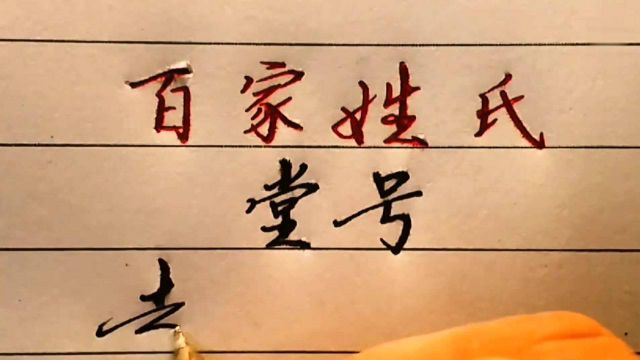 百家姓氏
堂号